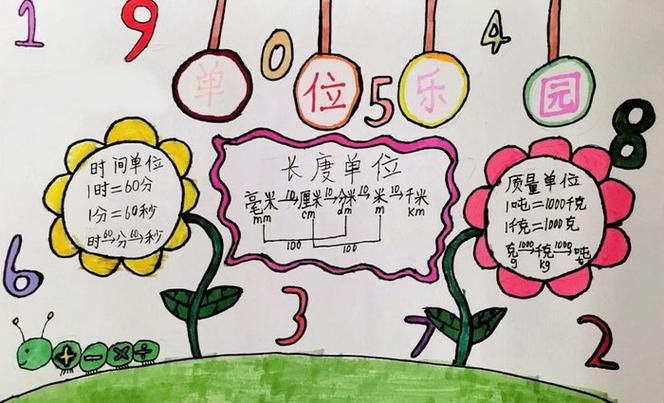 1 9 0 5 4 8
单位乐园
时间单位
1时=60分
1分=60秒
时 60→ 分 60→ 秒
长度单位
毫米 10→ 厘米 10→ 分米 10→ 米 10→ 千米
mm cm dm m km
100 100
质量单位
1吨=1000千克
1千克=1000克
克 1000→ 千克 1000→ 吨
g kg t
6 3 7 2
+ − × ÷